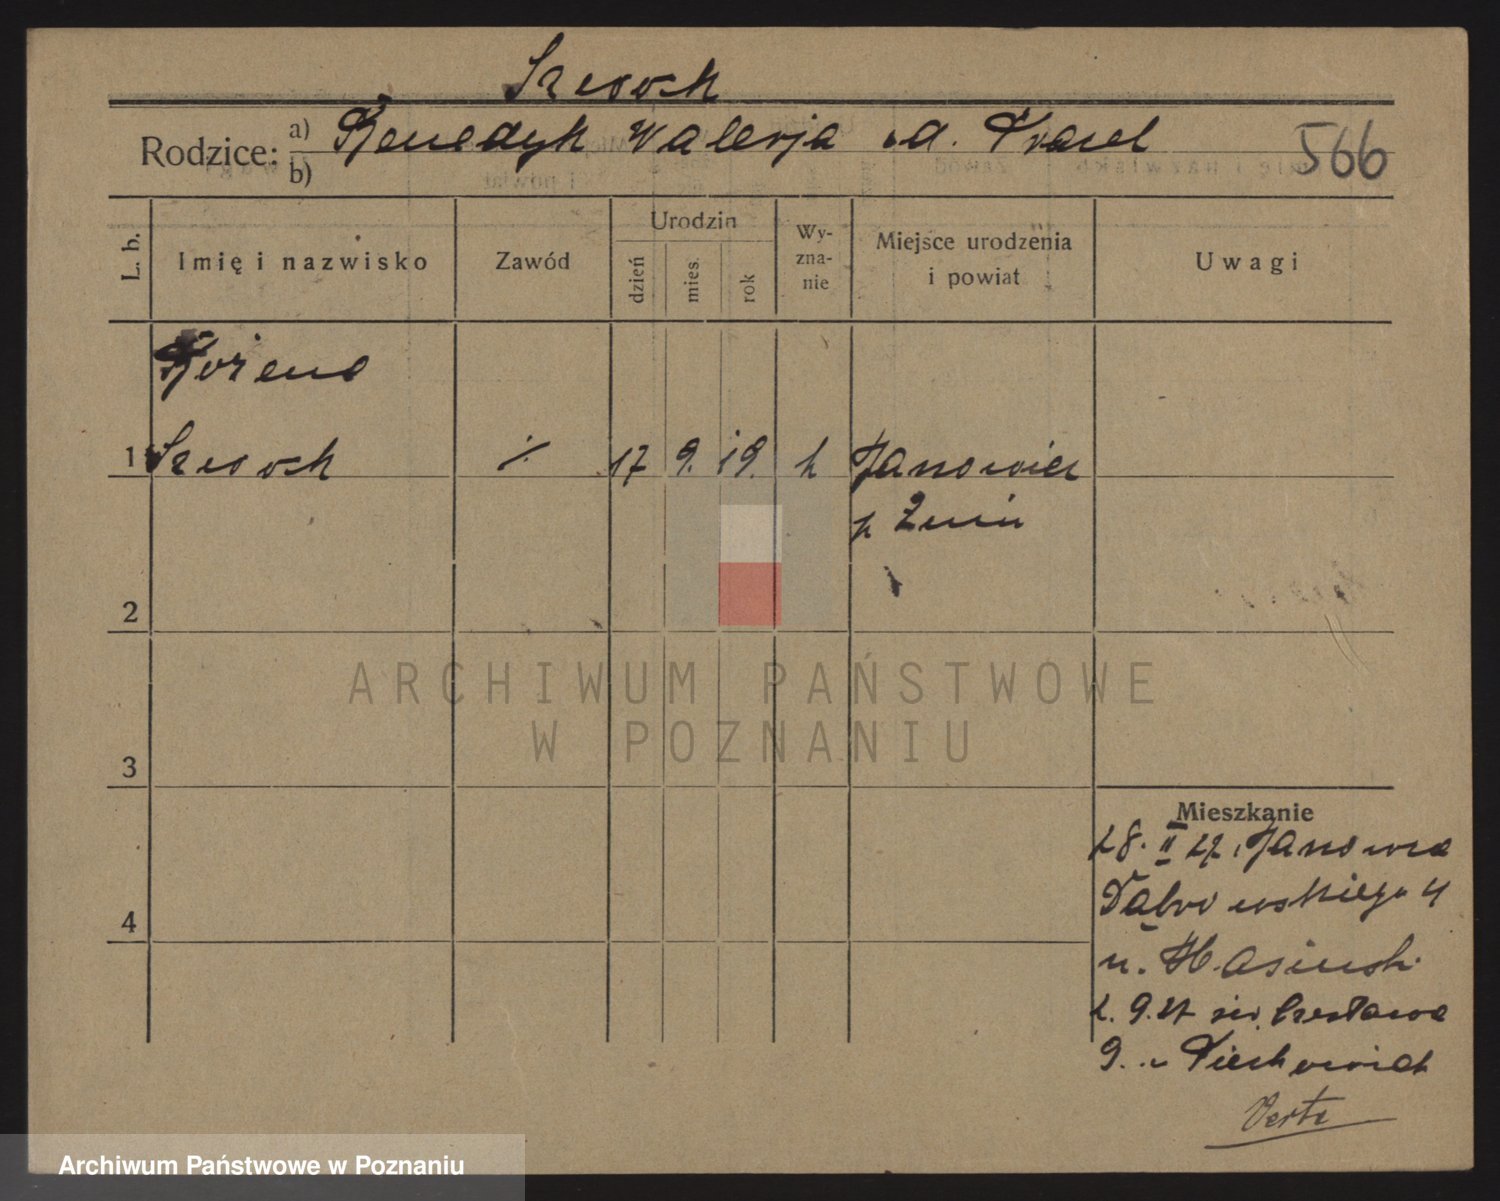 Szesoch
Rodzice: a) Benedyk Walerja
b)
566
L. b.
Imię i nazwisko
Zawód
Urodzin
dzień
mies.
rok
Wy-
zna-
nie
Miejsce urodzenia
i powiat
Uwagi
Bożena
1 17 9. 19. k Janowiec
p Żnin
2
ARCHIWUM PAŃSTWOWE
W POZNANIU
3
Mieszkanie
28. II 27. Janowca
Dąbrowskiego 4
4
u.
św. Czesława
9. u
Verte
Archiwum Państwowe w Poznaniu